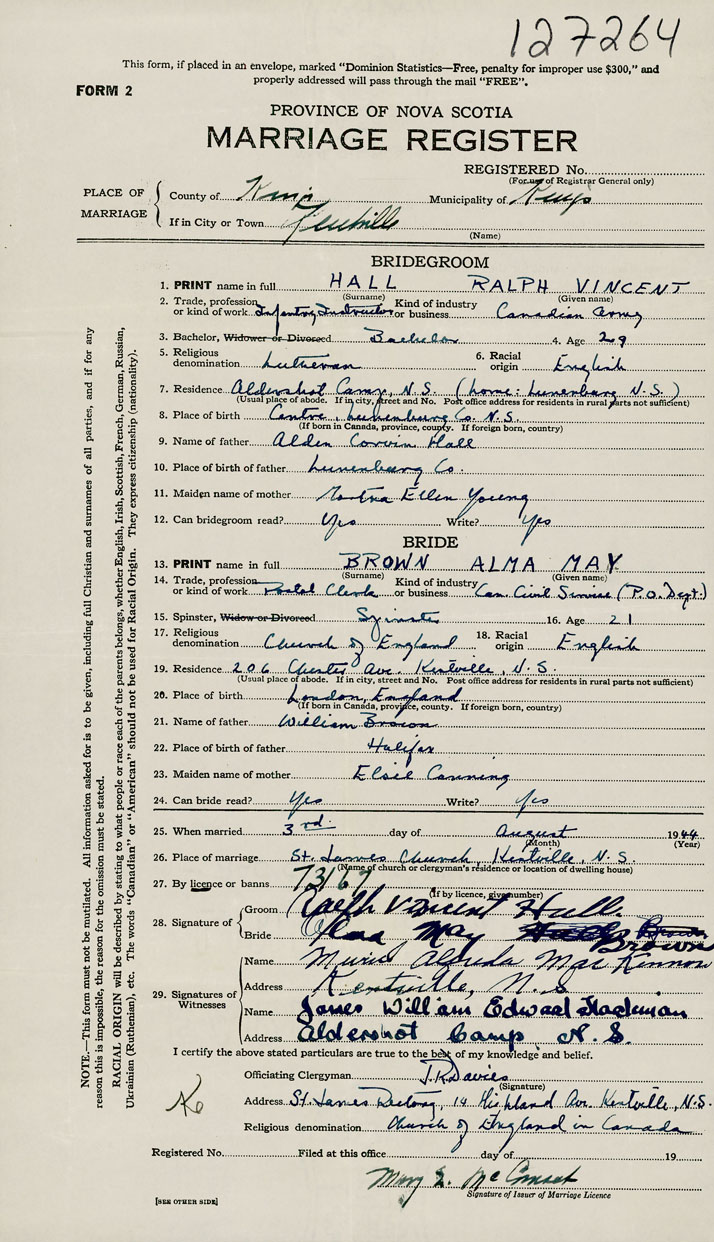 127264
This form, if placed in an envelope, marked "Dominion Statistics—Free, penalty for improper use $300," and
properly addressed will pass through the mail "FREE".
FORM 2
PROVINCE OF NOVA SCOTIA
MARRIAGE REGISTER
REGISTERED No.
(For use of Registrar General only)
PLACE OF MARRIAGE
County of Kings Municipality of Kings
If in City or Town Kentville
(Name)
BRIDEGROOM
1. PRINT name in full HALL RALPH VINCENT
(Surname) (Given name)
2. Trade, profession or kind of work Infantry Instructor Kind of industry or business Canadian Army
3. Bachelor, Widower or Divorced Bachelor 4. Age 29
5. Religious denomination Lutheran 6. Racial origin English
7. Residence Aldershot Camp, N.S. (home: Lunenburg N.S.)
(Usual place of abode. If in city, street and No. Post office address for residents in rural parts not sufficient)
8. Place of birth Centre, Lunenburg Co. N.S.
(If born in Canada, province, county. If foreign born, country)
9. Name of father Alden Hall
10. Place of birth of father Lunenburg Co.
11. Maiden name of mother Ellen Young
12. Can bridegroom read? Yes Write? Yes
BRIDE
13. PRINT name in full BROWN ALMA MAY
(Surname) (Given name)
14. Trade, profession or kind of work Postal Clerk Kind of industry or business Can. Civil Service (P.O. Dept.)
15. Spinster, Widow or Divorced Spinster 16. Age 21
17. Religious denomination Church of England 18. Racial origin English
19. Residence 206 Chester Ave. Kentville, N.S.
(Usual place of abode. If in city, street and No. Post office address for residents in rural parts not sufficient)
20. Place of birth London, England
(If born in Canada, province, county. If foreign born, country)
21. Name of father William Brown
22. Place of birth of father Halifax
23. Maiden name of mother Elsie Canning
24. Can bride read? Yes Write? Yes
25. When married 3rd day of August 1944
(Month) (Year)
26. Place of marriage St. James Church, Kentville, N.S.
(Name of church or clergyman's residence or location of dwelling house)
27. By licence or banns
(If by licence, give number)
28. Signature of
Groom Ralph Vincent Hall
Bride Alma May Brown Brown
29. Signatures of Witnesses
Name Mac Kinnon
Address Kentville, N.S
Name James William Edward
Address Aldershot Camp N.S.
I certify the above stated particulars are true to the best of my knowledge and belief.
Officiating Clergyman Davies
(Signature)
Address St. James Rectory, 14 Highland Ave Kentville, N.S.
Religious denomination Church of England in Canada
Registered No. Filed at this office day of 19
Mary
Signature of Issuer of Marriage Licence
[SEE OTHER SIDE]
NOTE.—This form must not be mutilated. All information asked for is to be given, including full Christian and surnames of all parties, and if for any
reason this is impossible, the reason for the omission must be stated.
RACIAL ORIGIN will be described by stating to what people or race each of the parents belongs, whether English, Irish, Scottish, French, German, Russian,
Ukrainian (Ruthenian), etc. The words "Canadian" or "American" should not be used for Racial Origin. They express citizenship (nationality).